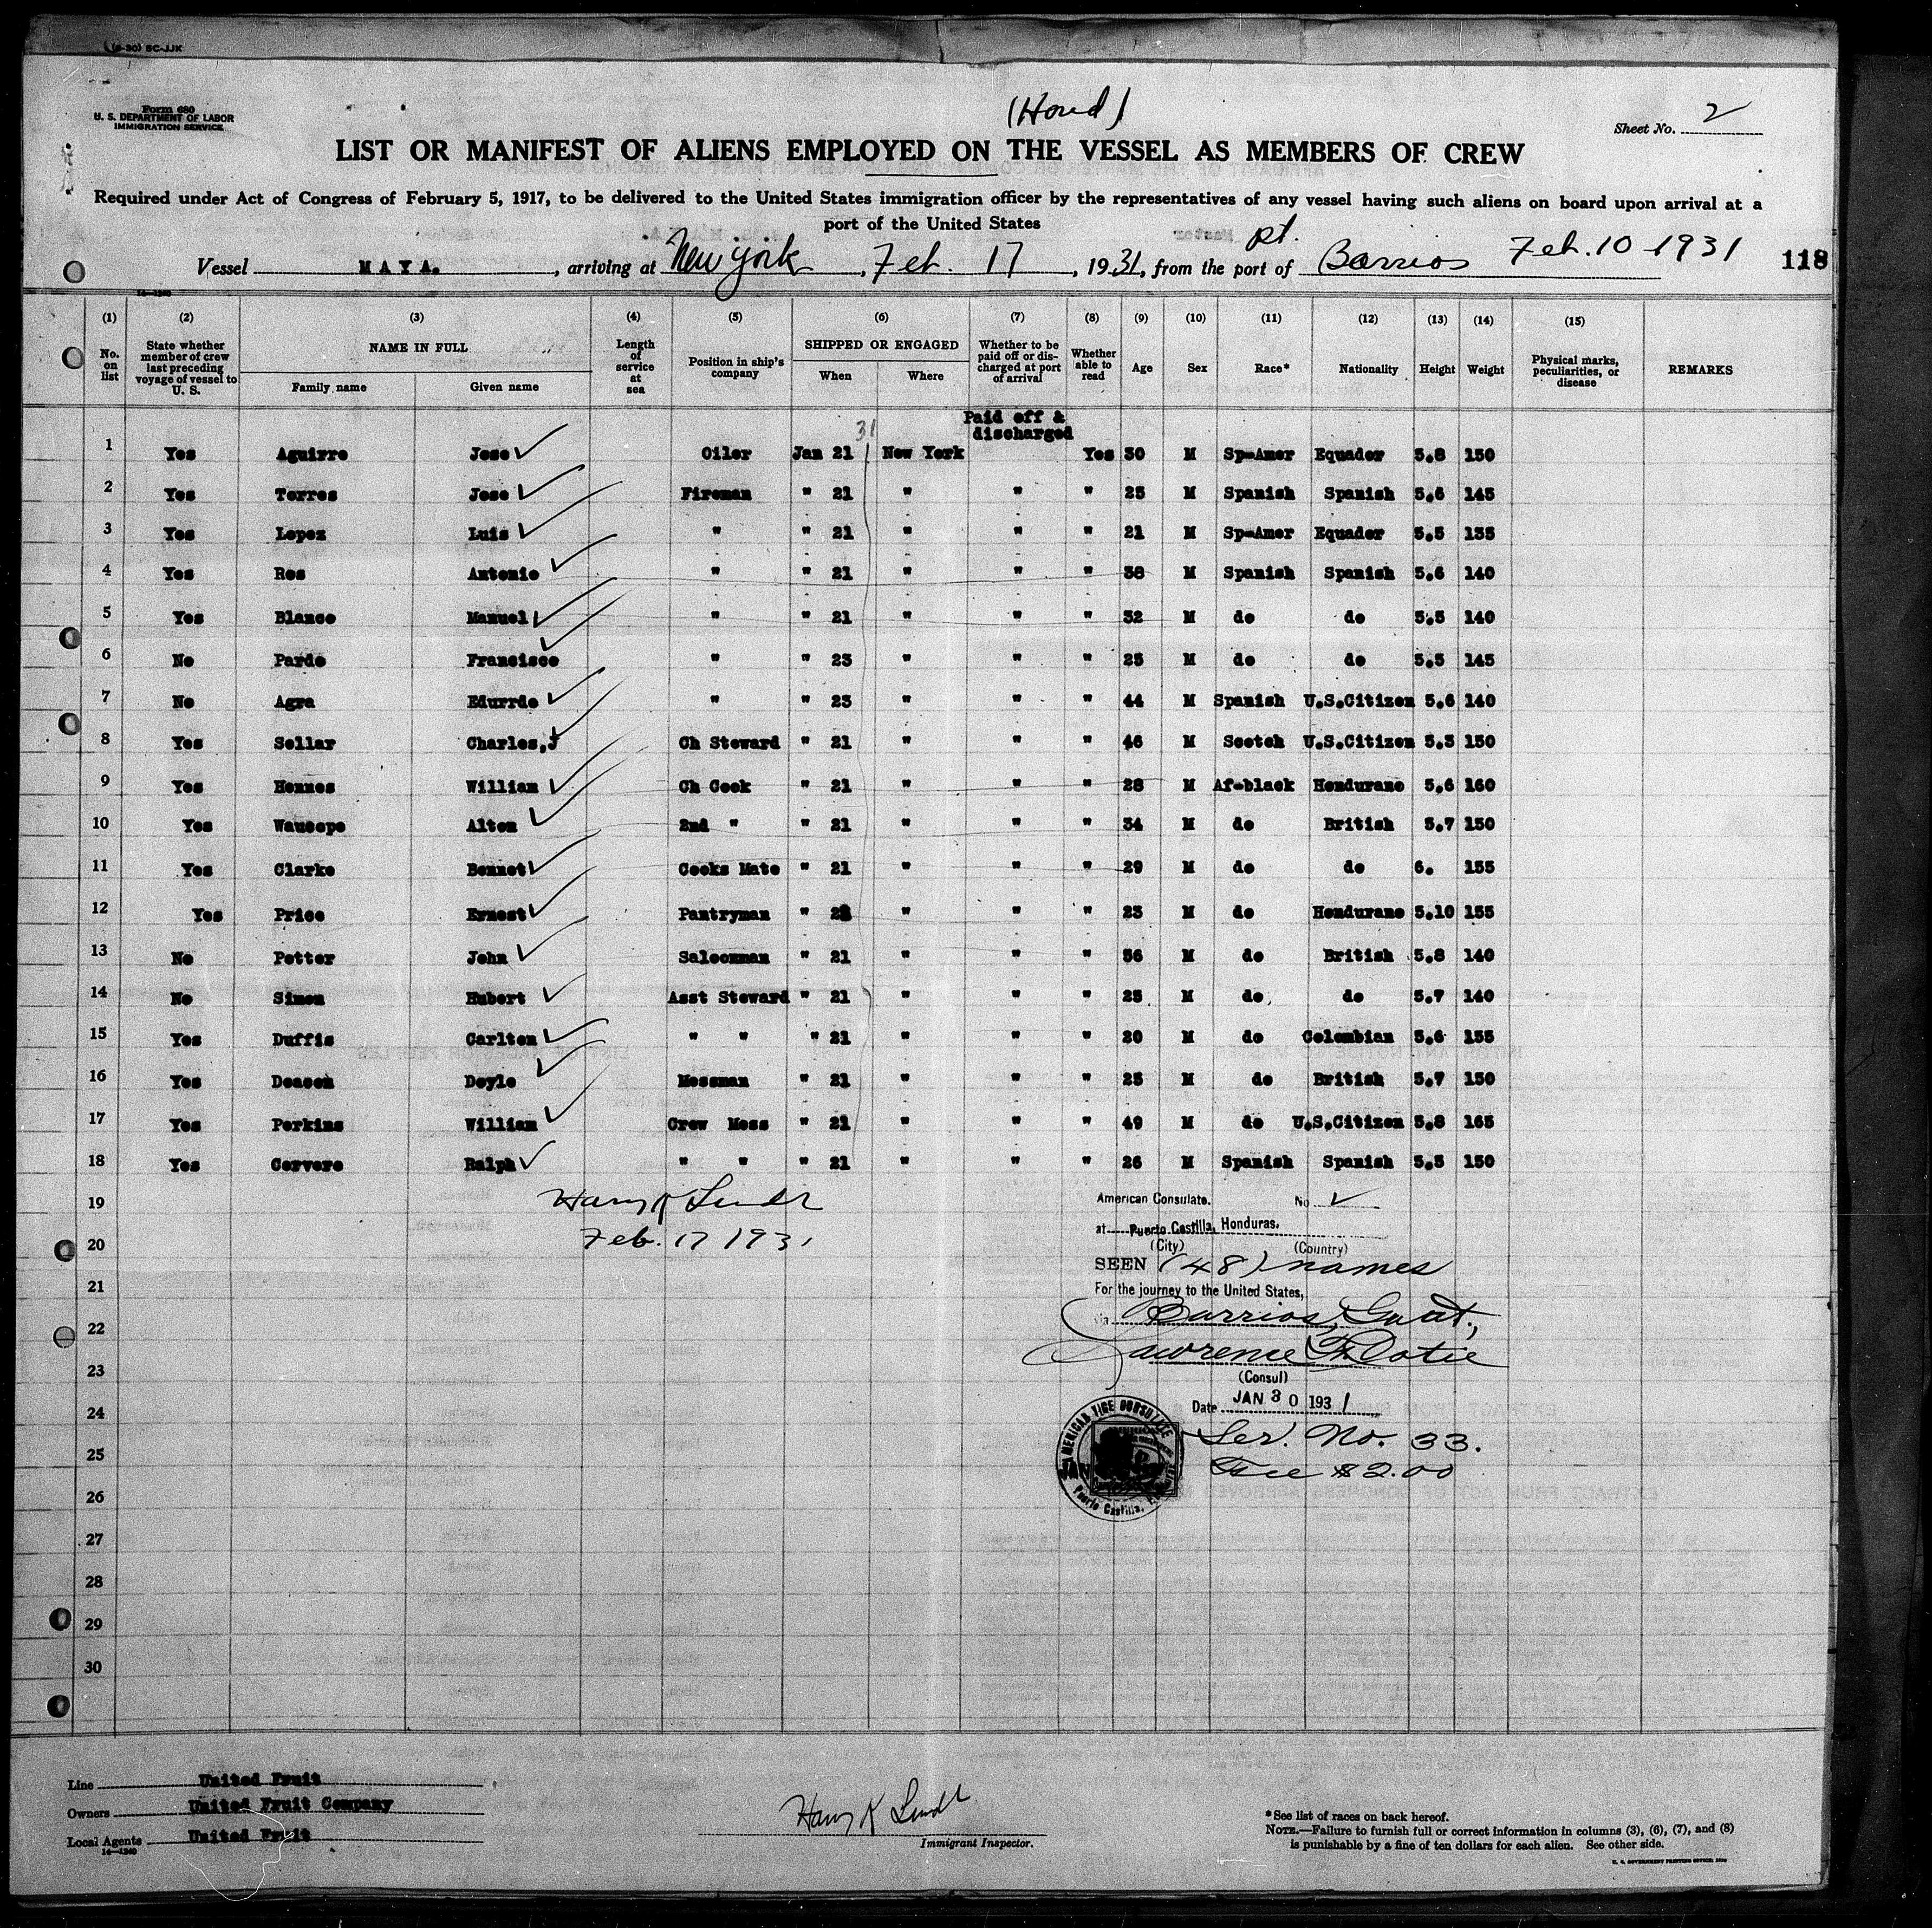 (6-30) SC-JJK
Form 680
U. S. DEPARTMENT OF LABOR
IMMIGRATION SERVICE
(Hond)
Sheet No. 2
LIST OR MANIFEST OF ALIENS EMPLOYED ON THE VESSEL AS MEMBERS OF CREW
Required under Act of Congress of February 5, 1917, to be delivered to the United States immigration officer by the representatives of any vessel having such aliens on board upon arrival at a
port of the United States
Vessel MAYA. , arriving at New York , Feb. 17 , 1931, from the port of Pt. Barrios Feb. 10-1931 118
(1) (2) (3) (4) (5) (6) (7) (8) (9) (10) (11) (12) (13) (14) (15)
No. on list State whether member of crew last preceding voyage of vessel to U. S. NAME IN FULL Family name Given name Length of service at sea Position in ship's company SHIPPED OR ENGAGED When Where Whether to be paid off or discharged at port of arrival Whether able to read Age Sex Race* Nationality Height Weight Physical marks, peculiarities, or disease REMARKS
31 Paid off & discharged
1 Yes Aguirre Jose Oiler Jan 21 New York Yes 30 M Sp-Amer Equador 5.8 150
2 Yes Torres Jose Fireman " 21 " " " 25 M Spanish Spanish 5.6 145
3 Yes Lopez Luis " " 21 " " " 21 M Sp-Amer Equador 5.5 135
4 Yes Ros Antonio " " 21 " " " 38 M Spanish Spanish 5.6 140
5 Yes Blanco Manuel " " 21 " " " 32 M do do 5.5 140
6 No Pardo Francisco " " 23 " " " 25 M do do 5.5 145
7 No Agra Edurrdo " " 23 " " " 44 M Spanish U.S.Citizen 5.6 140
8 Yes Sellar Charles,J Ch Steward " 21 " " " 46 M Scotch U.S.Citizen 5.5 150
9 Yes Hennes William Ch Cook " 21 " " " 28 M Af-black Hondurano 5.6 160
10 Yes Wausope Alton 2nd " " 21 " " " 34 M do British 5.7 150
11 Yes Clarke Bennet Cooks Mate " 21 " " " 29 M do do 6. 155
12 Yes Price Ernest Pantryman " 21 " " " 23 M do Hondurano 5.10 155
13 No Potter John Saloonman " 21 " " " 36 M do British 5.8 140
14 No Simon Hubert Asst Steward " 21 " " " 25 M do do 5.7 140
15 Yes Duffis Carlton " " " 21 " " " 20 M do Colombian 5.6 155
16 Yes Deacon Doyle Messman " 21 " " " 25 M do British 5.7 150
17 Yes Perkins William Crew Mess " 21 " " " 49 M do U.S.Citizen 5.8 165
18 Yes Cervero Ralph " " " 21 " " " 26 M Spanish Spanish 5.5 150
19
20
21
22
23
24
25
26
27
28
29
30
Harry K Lendt
Feb. 17 1931
American Consulate. No
at Puerto Castilla, Honduras.
(City) (Country)
SEEN (48) names
For the journey to the United States,
via Barrios, Guat.,
Lawrence F. Cotie
(Consul)
Date JAN 30 1931
Ser. No. 33.
Fee $2.00
AMERICAN VICE CONSULATE
JAN
Puerto Castilla,
Line United Fruit
Owners United Fruit Company
Local Agents United Fruit
14—1240
Harry K Lendt
Immigrant Inspector.
*See list of races on back hereof.
NOTE.—Failure to furnish full or correct information in columns (3), (6), (7), and (8)
is punishable by a fine of ten dollars for each alien. See other side.
U. S. GOVERNMENT PRINTING OFFICE: 1930